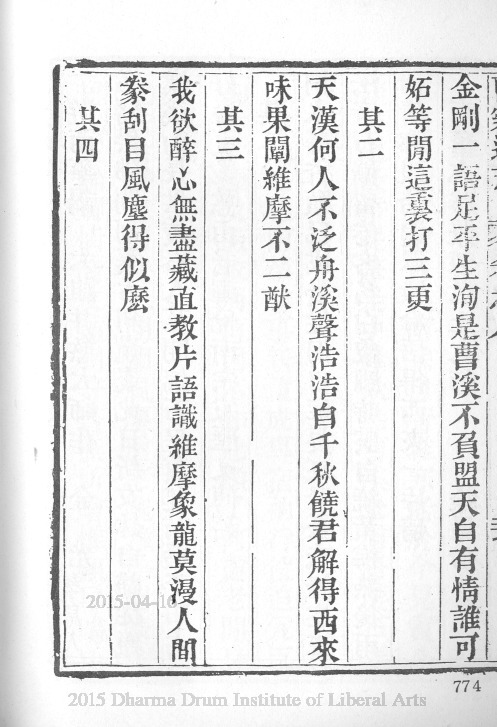 金剛一語足平生洵是曹溪不負盟天自有情誰可
妬等閒這裏打三更
其二
天漢何人不泛舟溪聲浩浩自千秋饒君解得西來
味果闡維摩不二猷
其三
我欲醉心無盡藏直教片語識維摩象龍莫漫人間
豢刮目風塵得似麽
其四
774
2015-04-10
2015 Dharma Drum Institute of Liberal Arts